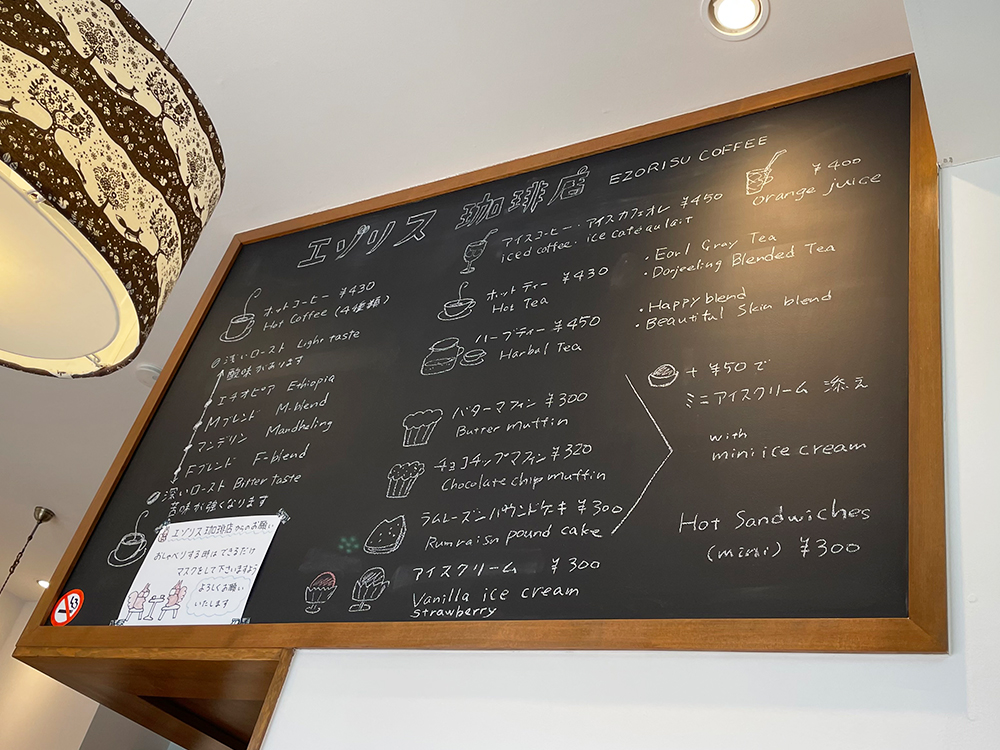 エゾリス 珈琲店 EZORISU COFFEE
ホットコーヒー ¥430
Hot Coffee (4種類)
浅いロースト Light taste
酸味があります
エチオピア Ethiopia
Mブレンド M-blend
マンデリン Mandheling
Fブレンド F-blend
深いロースト Bitter taste
苦味が強くなります
エゾリス珈琲店からのお願い
おしゃべりする時はできるだけ
マスクをして下さいますよう
よろしくお願い
いたします
アイスコーヒー・アイスカフェオレ ¥450
iced coffee・ice café au lait
ホットティー ¥430
Hot Tea
ハーブティー ¥450
Harbal Tea
バターマフィン ¥300
Butter muffin
チョコチップマフィン ¥320
Chocolate chip muffin
ラムレーズンパウンドケーキ ¥300
Rumraisn pound cake
アイスクリーム ¥300
Vanilla ice cream
Strawberry
¥400
orange juice
・Earl Gray Tea
・Darjeeling Blended Tea
・Happy blend
・Beautiful Skin blend
+ ¥50で
ミニアイスクリーム 添え
with
mini ice cream
Hot Sandwiches
(mini) ¥300